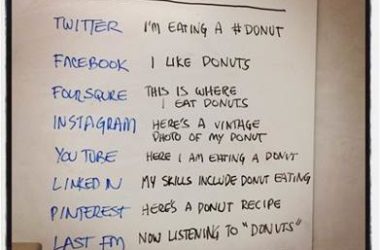 TWITTER I'M EATING A #DONUT
FACEBOOK I LIKE DONUTS
FOURSQURE THIS IS WHERE
I EAT DONUTS
INSTAGRAM HERE'S A VINTAGE
PHOTO OF MY DONUT
YOU TUBE HERE I AM EATING A DONUT
LINKED IN MY SKILLS INCLUDE DONUT EATING
PINTEREST HERE'S A DONUT RECIPE
LAST FM NOW LISTENING TO "DONUTS"